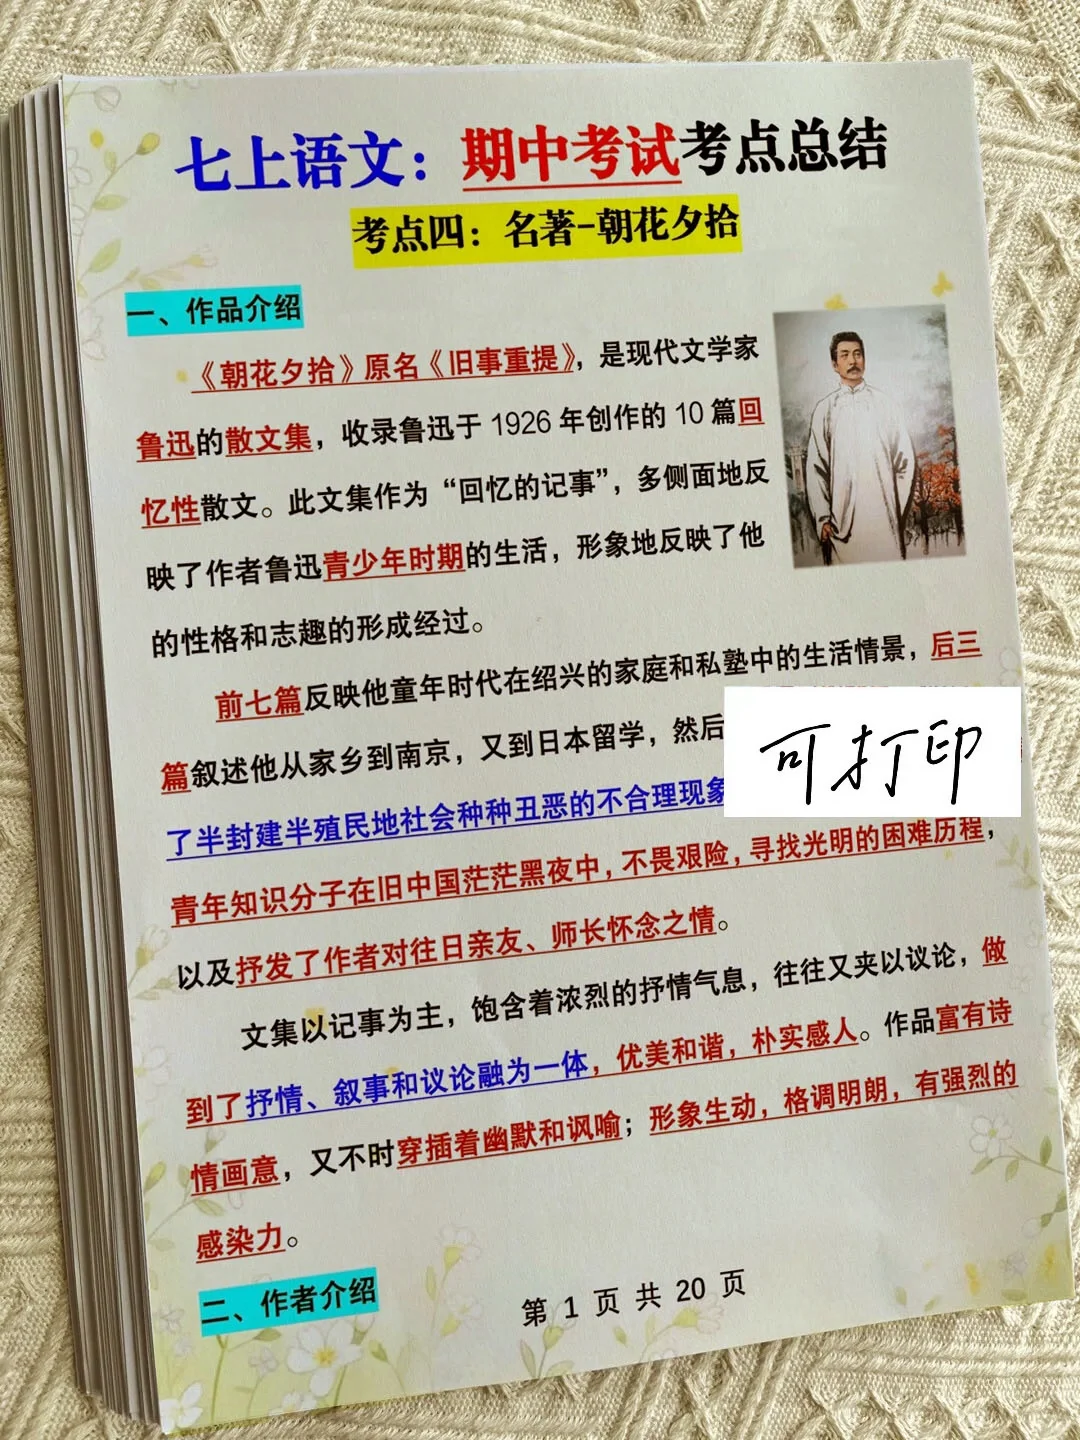 七上语文：期中考试考点总结
考点四：名著-朝花夕拾
一、作品介绍
《朝花夕拾》原名《旧事重提》，是现代文学家
鲁迅的散文集，收录鲁迅于 1926 年创作的 10 篇回
忆性散文。此文集作为“回忆的记事”，多侧面地反
映了作者鲁迅青少年时期的生活，形象地反映了他
的性格和志趣的形成经过。
前七篇反映他童年时代在绍兴的家庭和私塾中的生活情景，后三
篇叙述他从家乡到南京，又到日本留学，然后
可打印
了半封建半殖民地社会种种丑恶的不合理现象
青年知识分子在旧中国茫茫黑夜中，不畏艰险，寻找光明的困难历程，
以及抒发了作者对往日亲友、师长怀念之情。
文集以记事为主，饱含着浓烈的抒情气息，往往又夹以议论，做
到了抒情、叙事和议论融为一体，优美和谐，朴实感人。作品富有诗
情画意，又不时穿插着幽默和讽喻；形象生动，格调明朗，有强烈的
感染力。
二、作者介绍
第 1 页 共 20 页